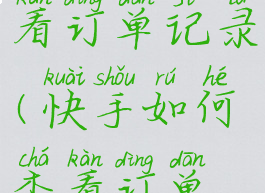 kàn dìng dān jì lù
看订单记录
kuài shǒu rú hé
(快手如何
chá kàn dìng dān
查看订单